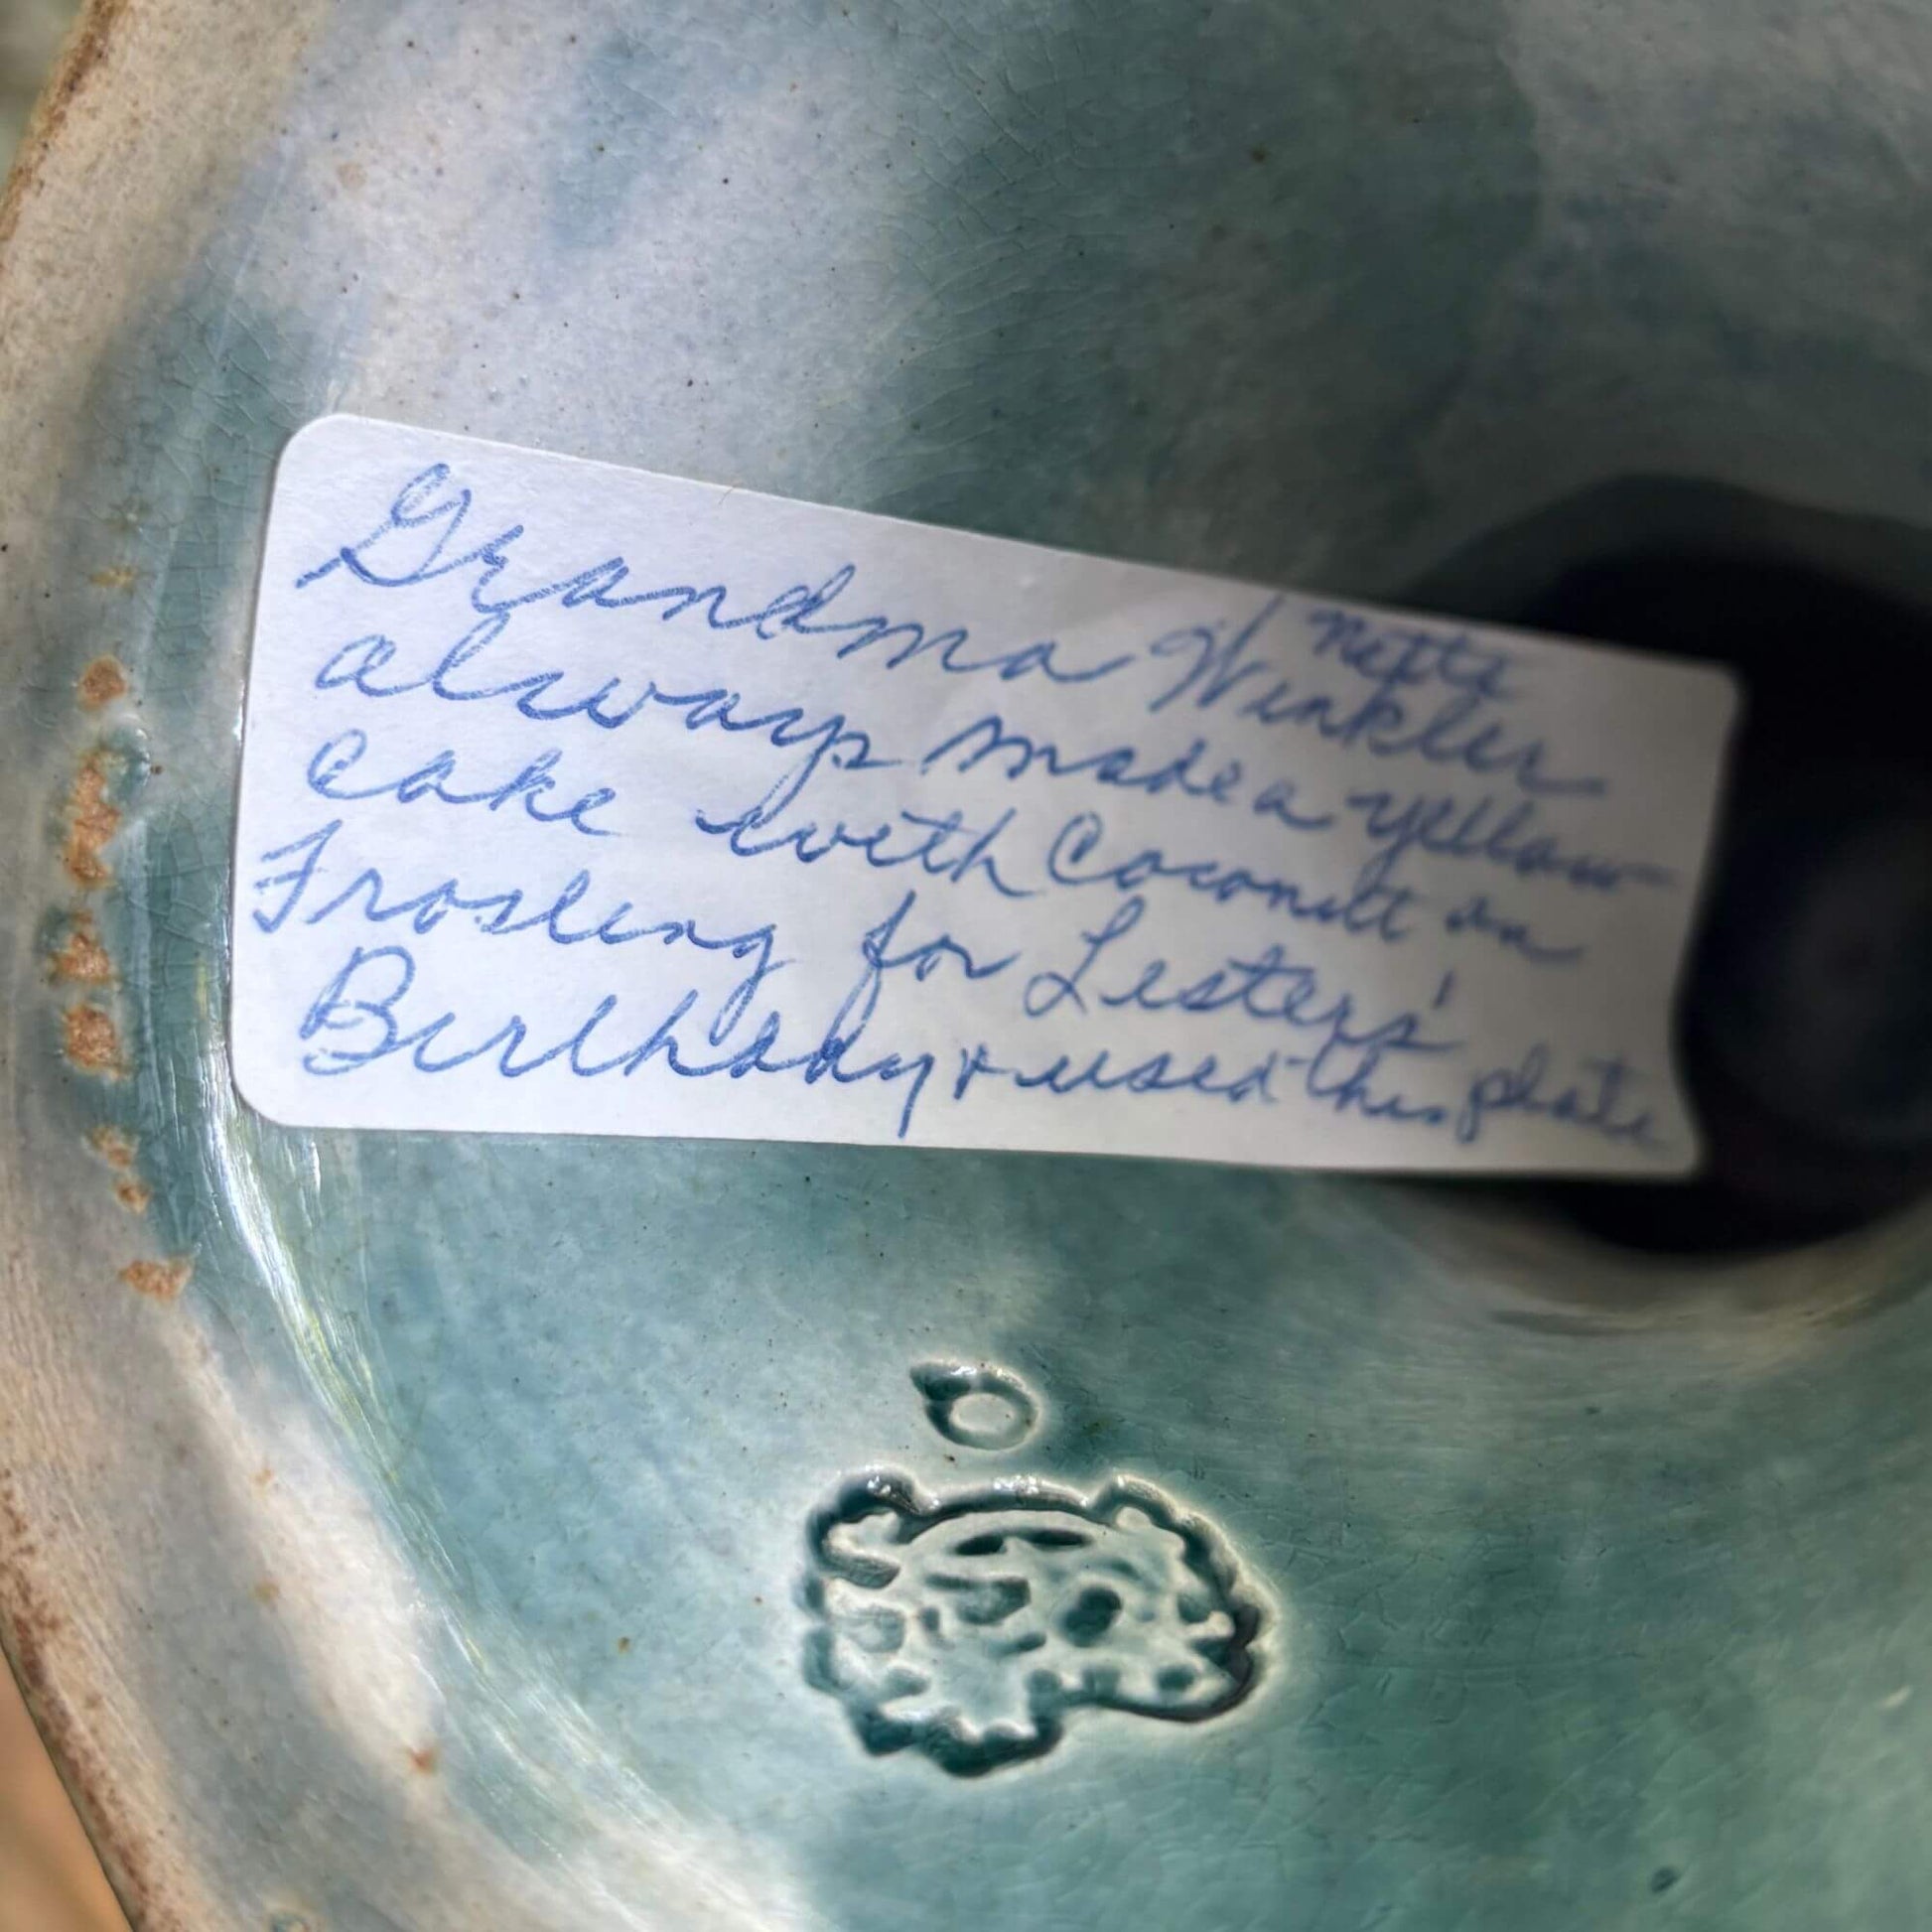 Nette
Grandma Winkler
always made a yellow
cake with Coconutt on
Frosting for Lesters'
Birthday & used this plate